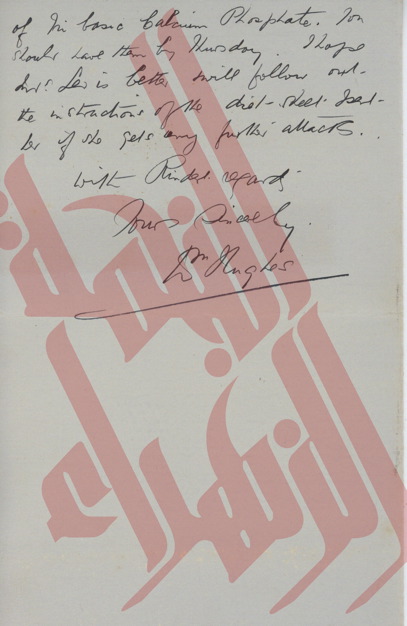 of Tri basic Calcium Phosphate. You
should have them by Thursday. I hope
Mrs. Leo is better & will follow out
the instructions of the diet-sheet I sent
her if she gets any further attacks.
with kindest regards
Yours sincerely.
Hughes